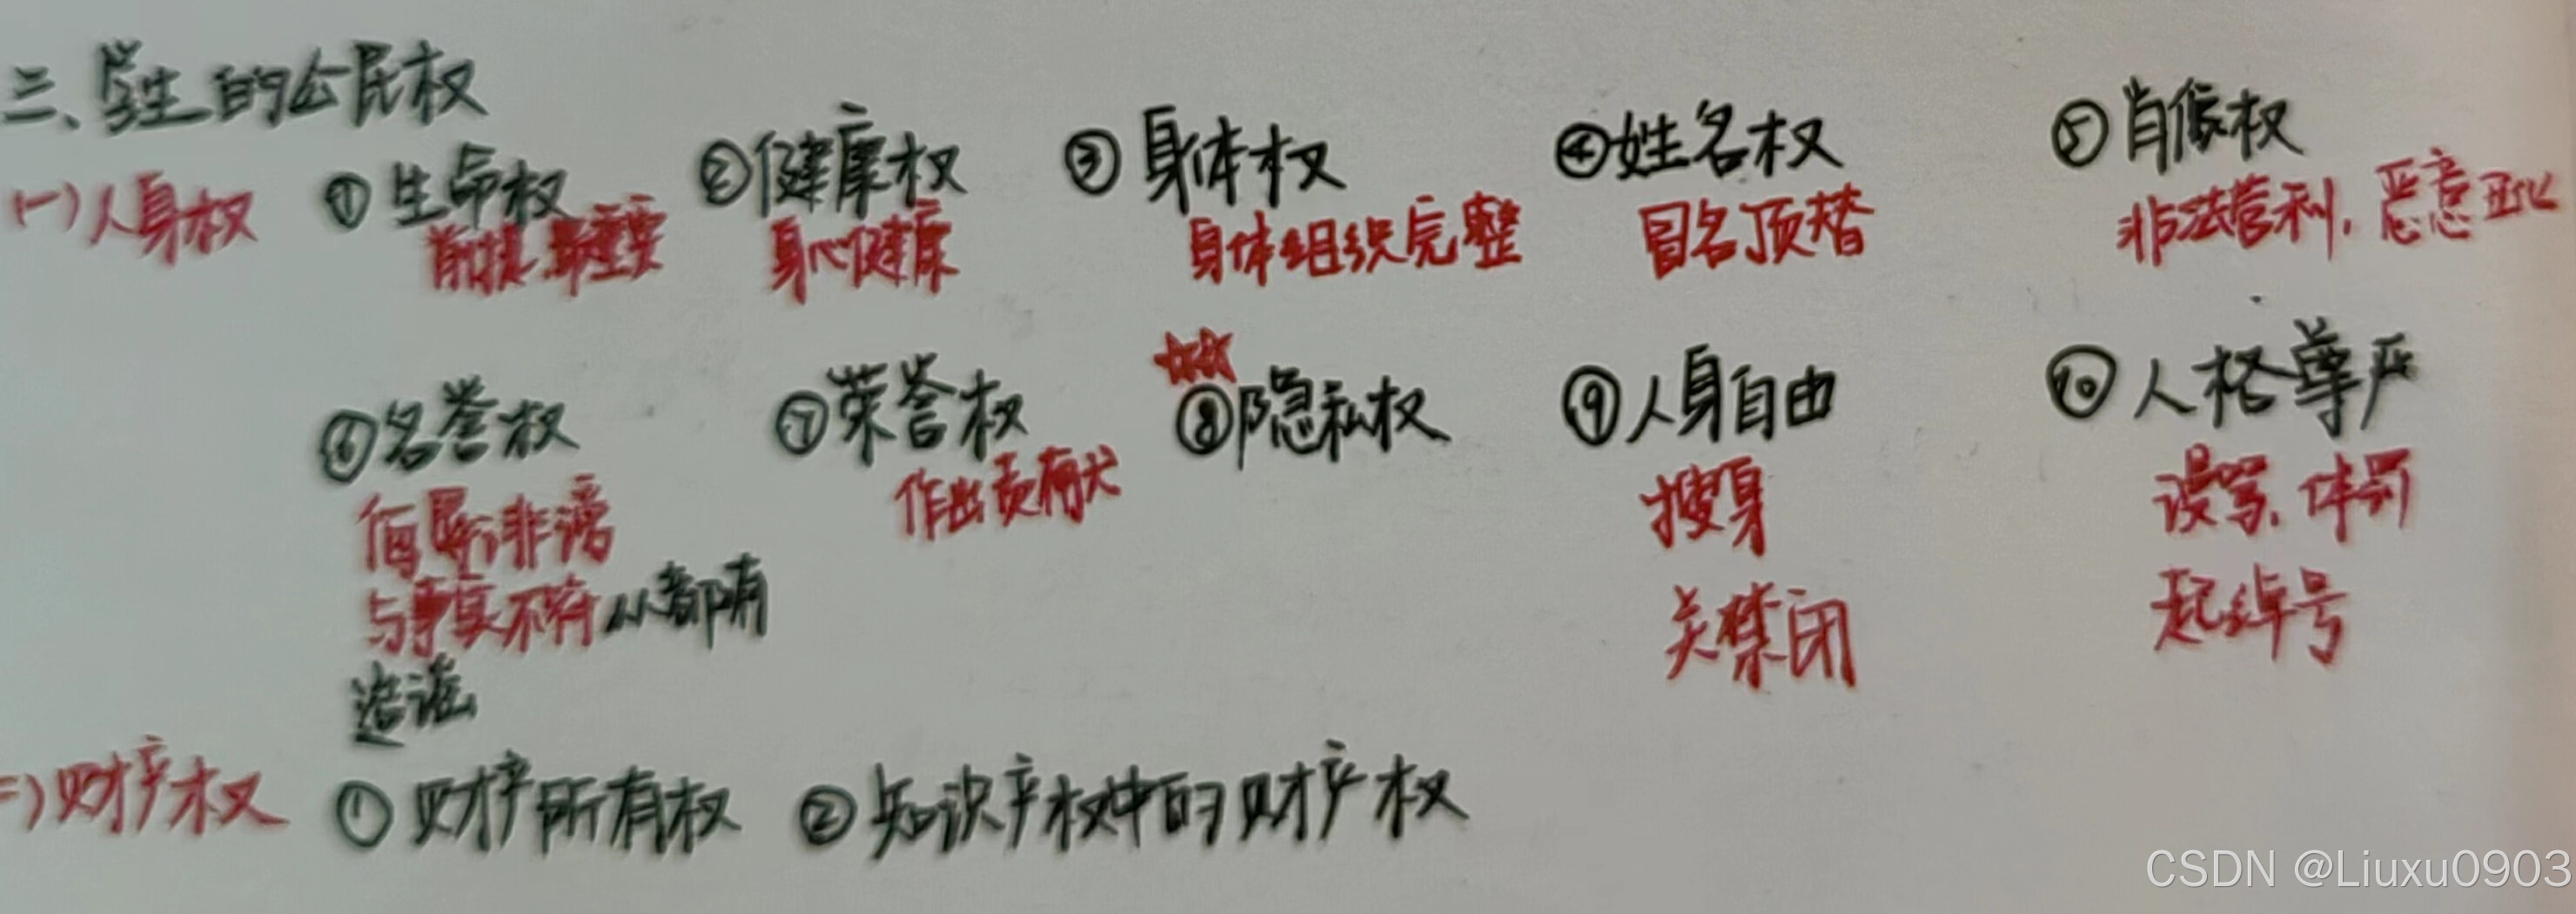 三、学生的公民权
(一)人身权 ①生命权 ②健康权 ③身体权 ④姓名权 ⑤肖像权
前提,最重要 身心健康 身体组织完整 冒名顶替 非法营利,恶意丑化
⑥名誉权 ⑦荣誉权 ⑧隐私权 ⑨人身自由 ⑩人格尊严
侮辱,诽谤 作出贡献 搜身 谩骂、体罚
与事实不符 人人都有 关禁闭 起绰号
造谣
二)财产权 ①财产所有权 ②知识产权中的财产权
CSDN @Liuxu0903